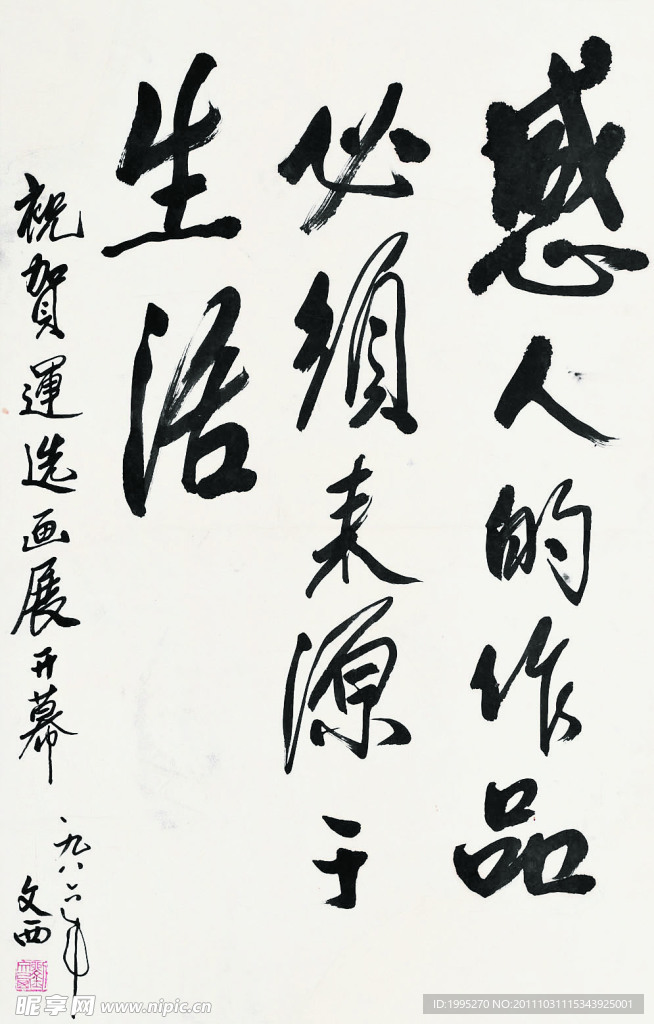 感人的作品
必须来源于
生活
祝贺運选画展开幕
一九八六年
文西
昵享网 www.nipic.cn
ID:1995270 NO:20111031115343925001